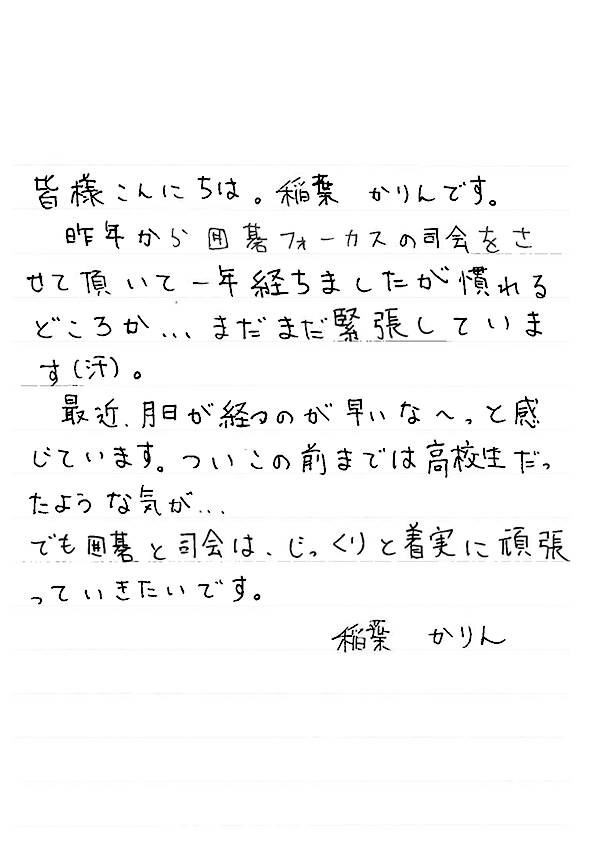 皆様こんにちは。稲葉 かりんです。
昨年から囲碁フォーカスの司会をさ
せて頂いて一年経ちましたが慣れる
どころか...まだまだ緊張していま
す(汗)。
最近、月日が経つのが早いなぁ〜っと感
じています。ついこの前までは高校生だっ
たような気が...
でも囲碁と司会は、じっくりと着実に頑張
っていきたいです。
稲葉 かりん